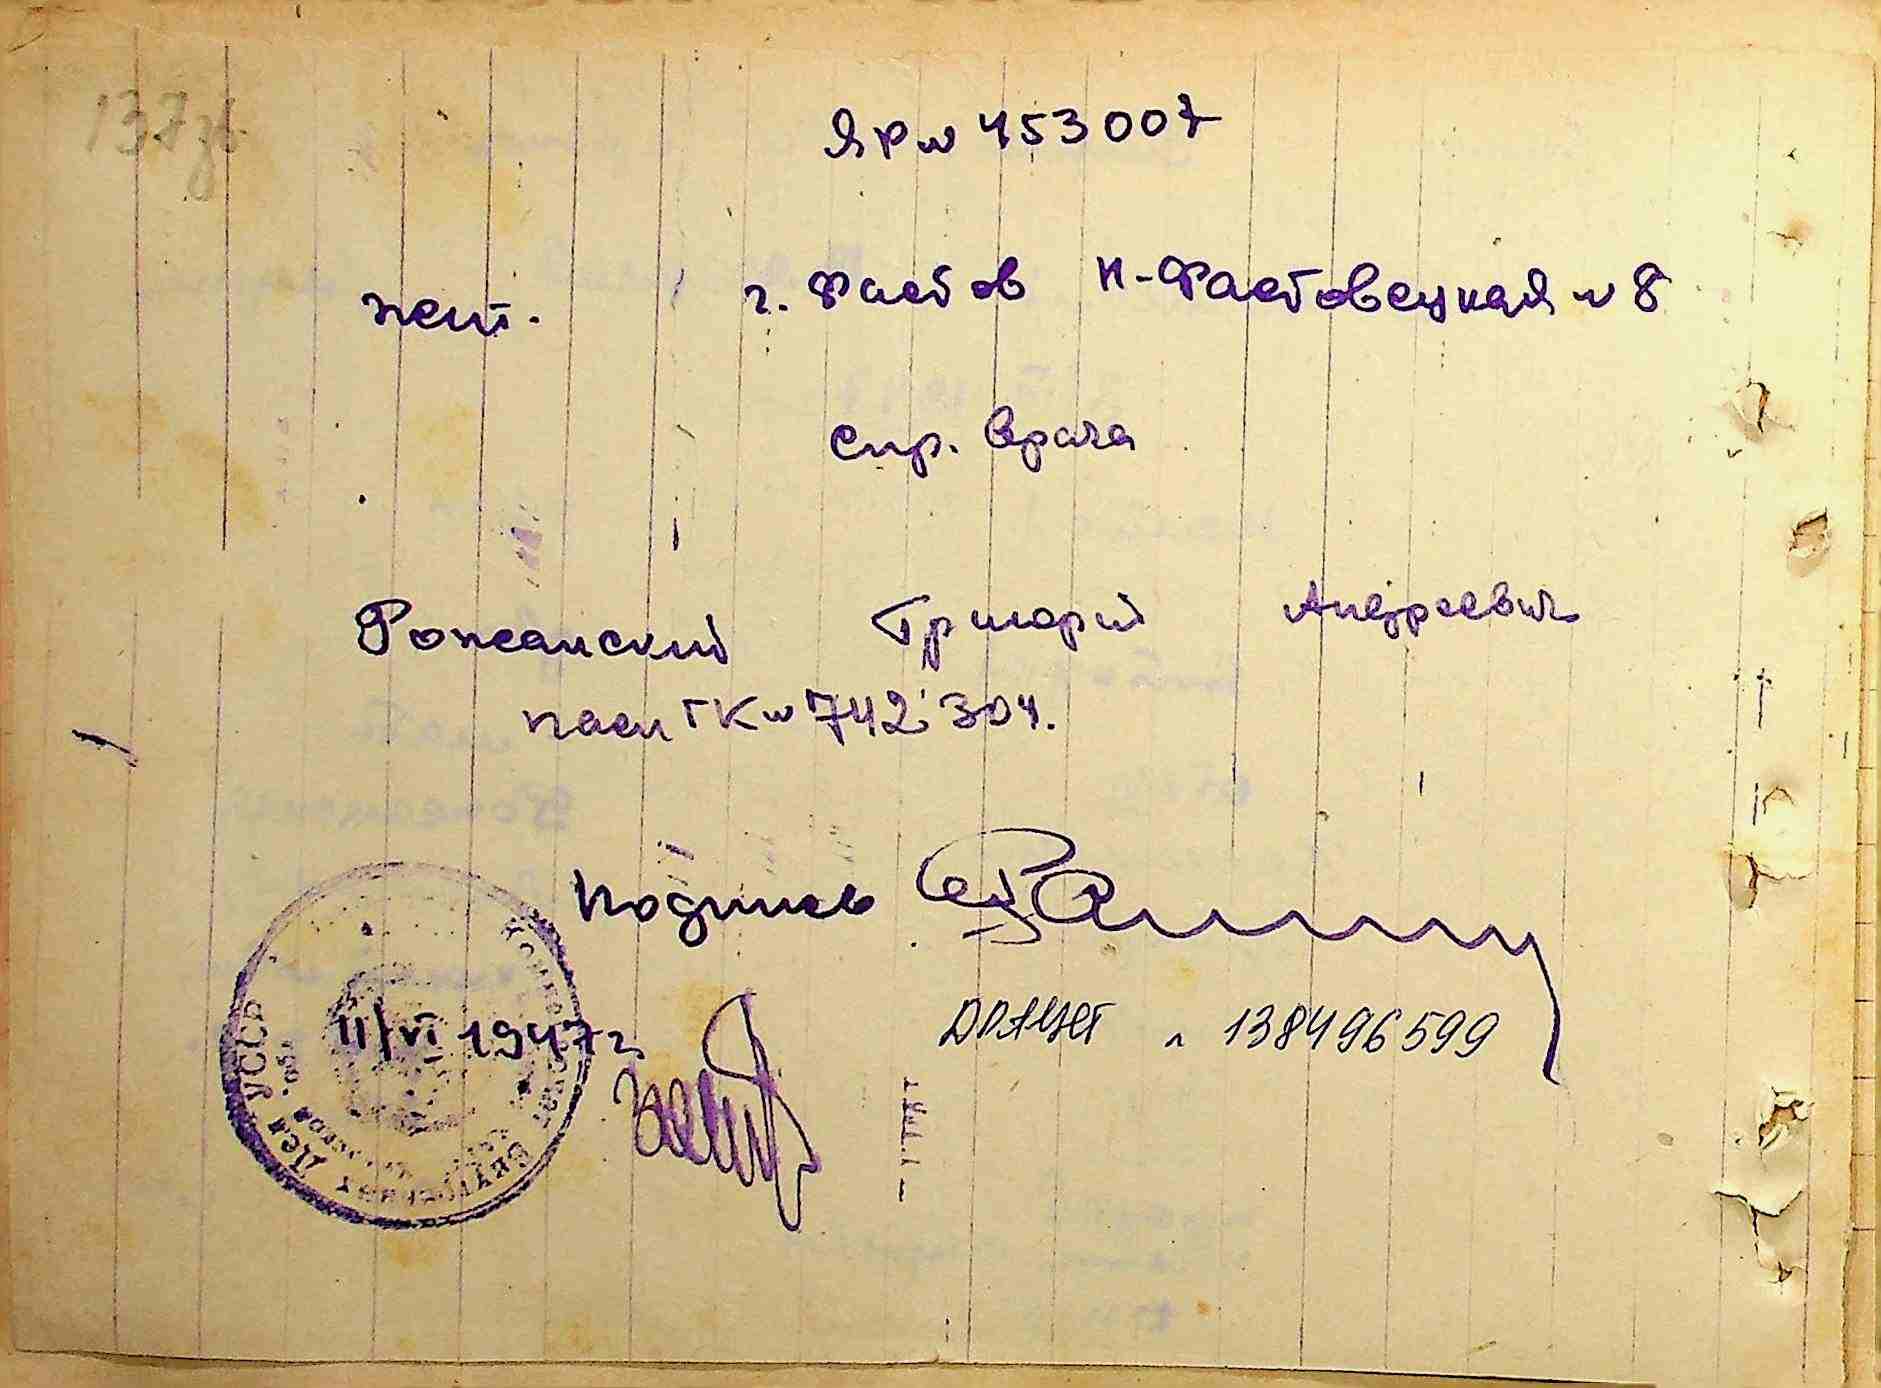 137
ЯР № 453007
жит. г. Фастов К-Фастовецкая № 8
спр. врача
Рожанский Григорий Андреевич
пасп ГК № 742304.
Подпись
11/VI 1947 г.
№ 138496599
УССР